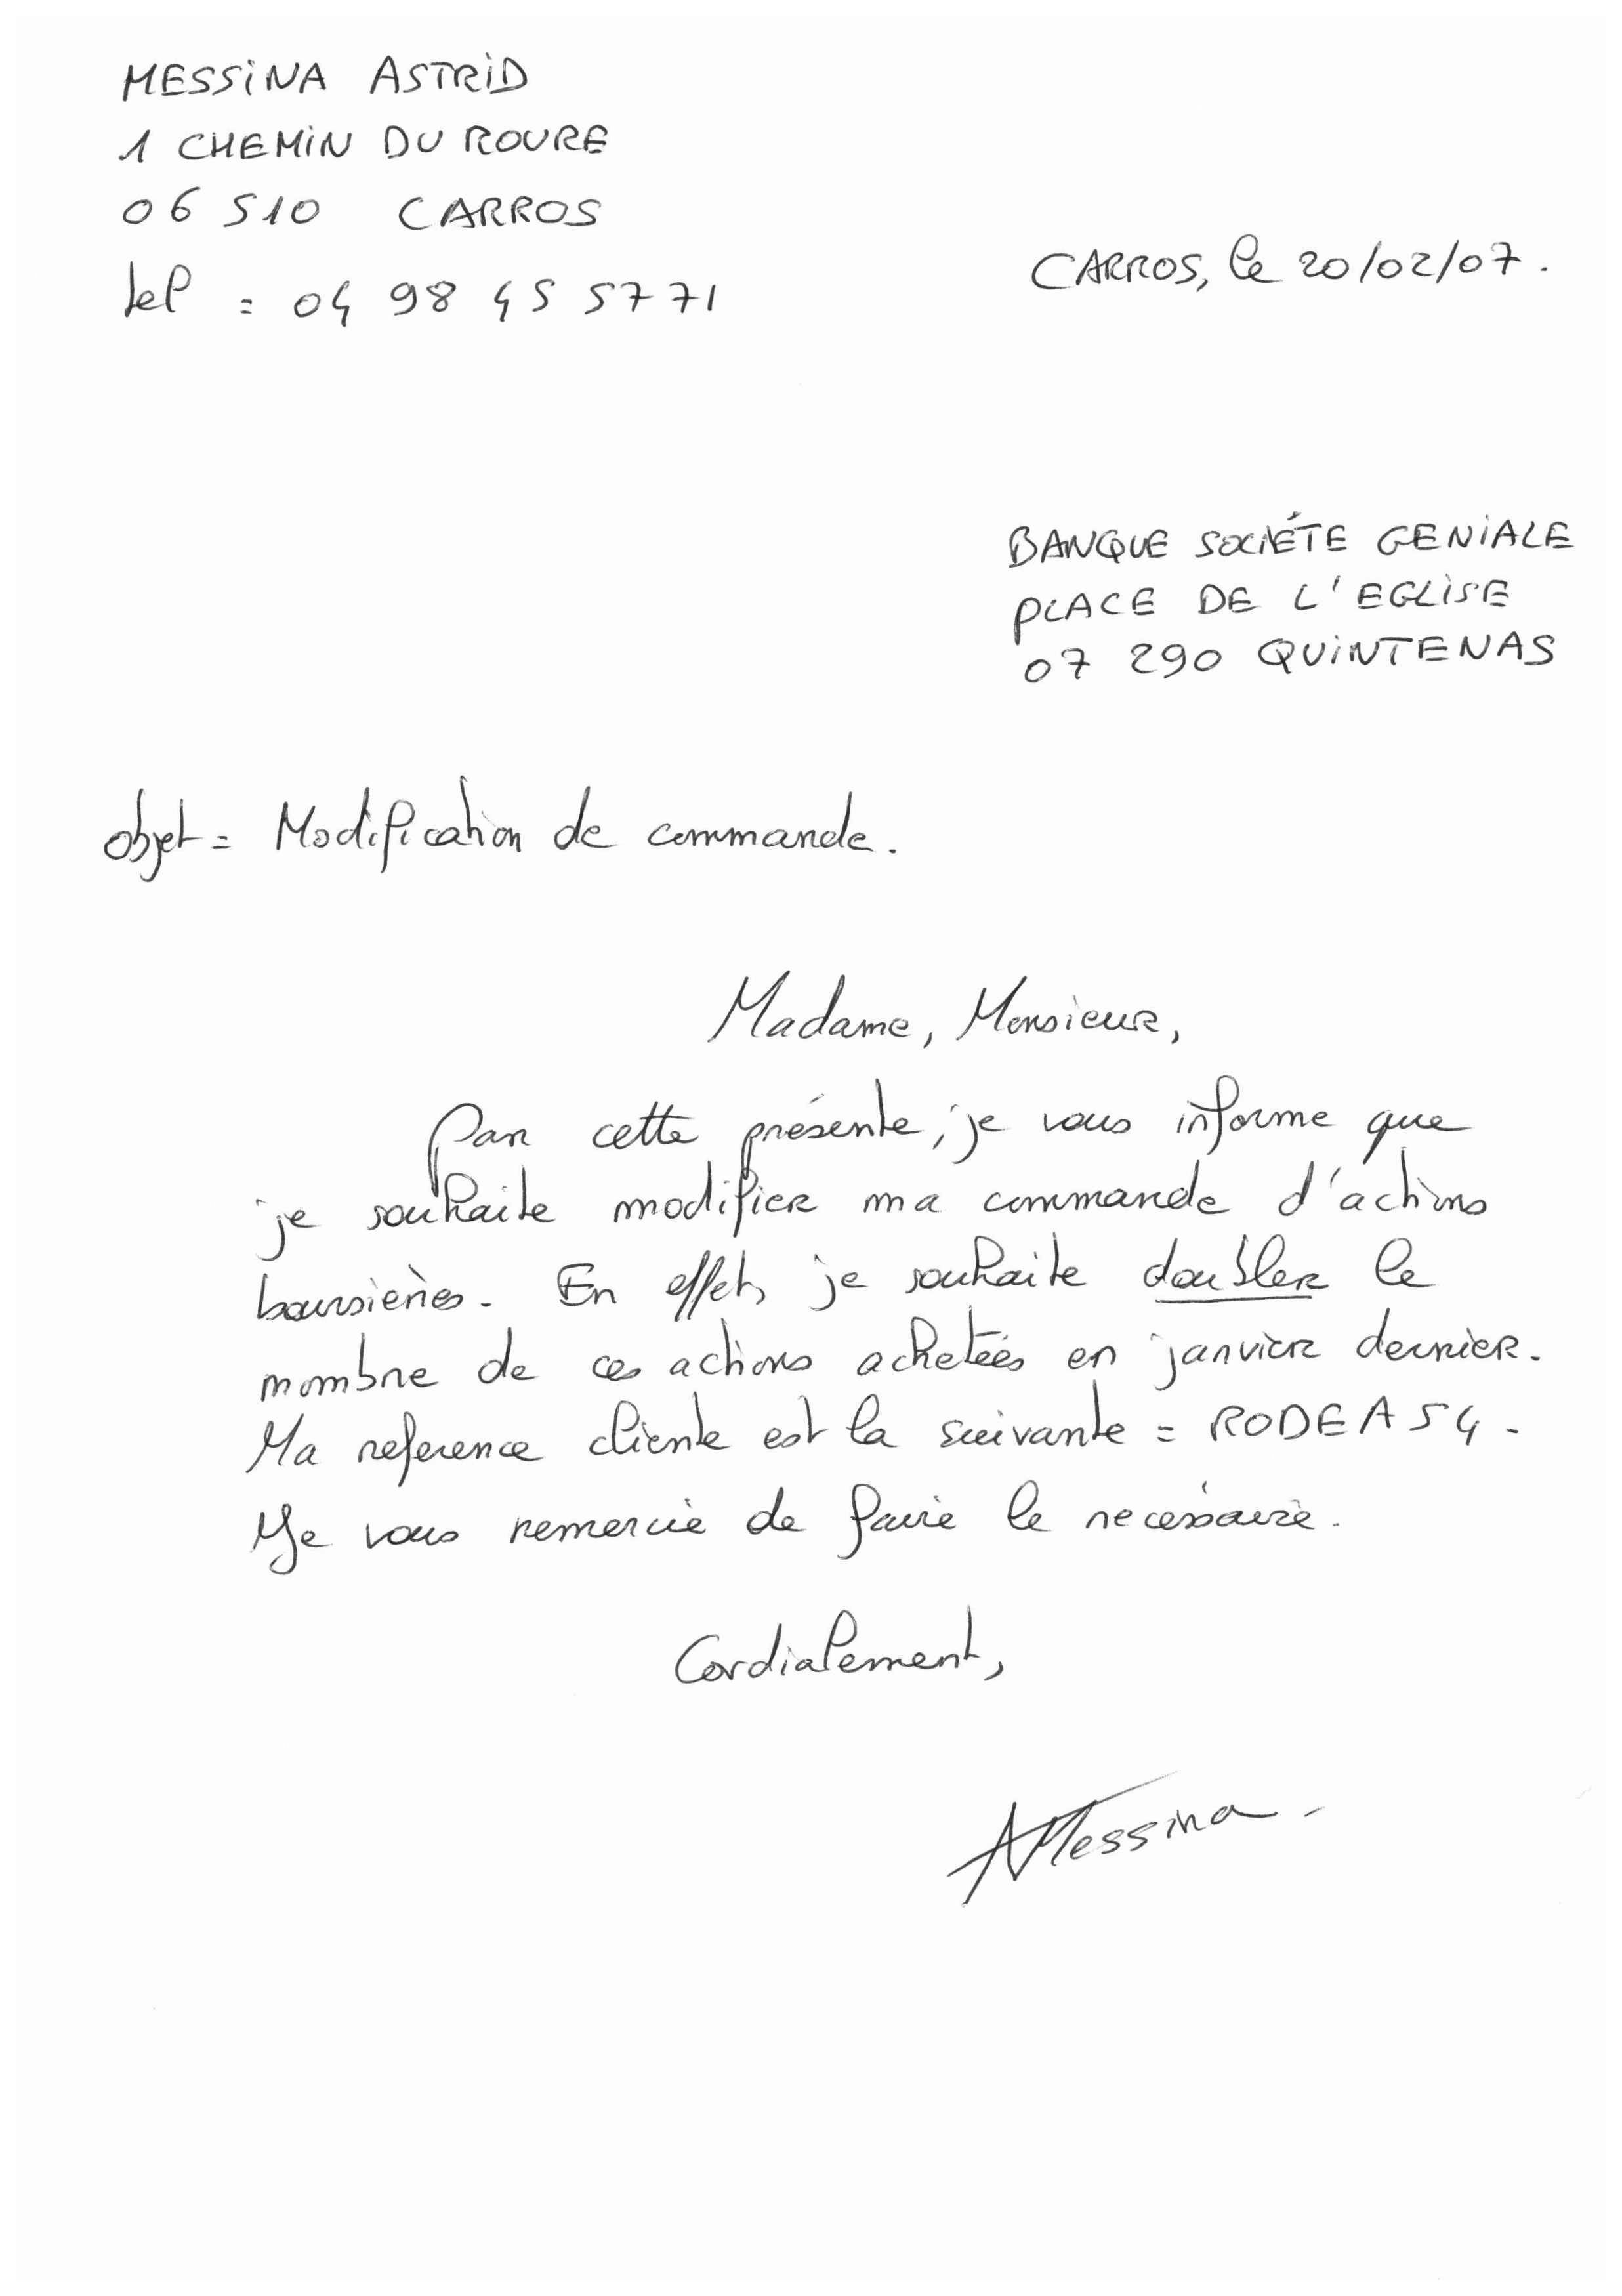 MESSINA ASTRID
1 CHEMIN DU ROURE
06 510 CARROS
tel = 04 98 45 57 71
CARROS, le 20/02/07.
BANQUE SOCIÉTE GENIALE
PLACE DE L'EGLISE
07 290 QUINTENAS
objet = Modification de commande.
Madame, Monsieur,
Par cette présente, je vous informe que
je souhaite modifier ma commande d'actions
boursières. En effet, je souhaite doubler le
nombre de ces actions achetées en janvier dernier.
Ma reference cliente est la suivante = RODEA54.
Je vous remercie de faire le necéssaire.
Cordialement,
AMessina